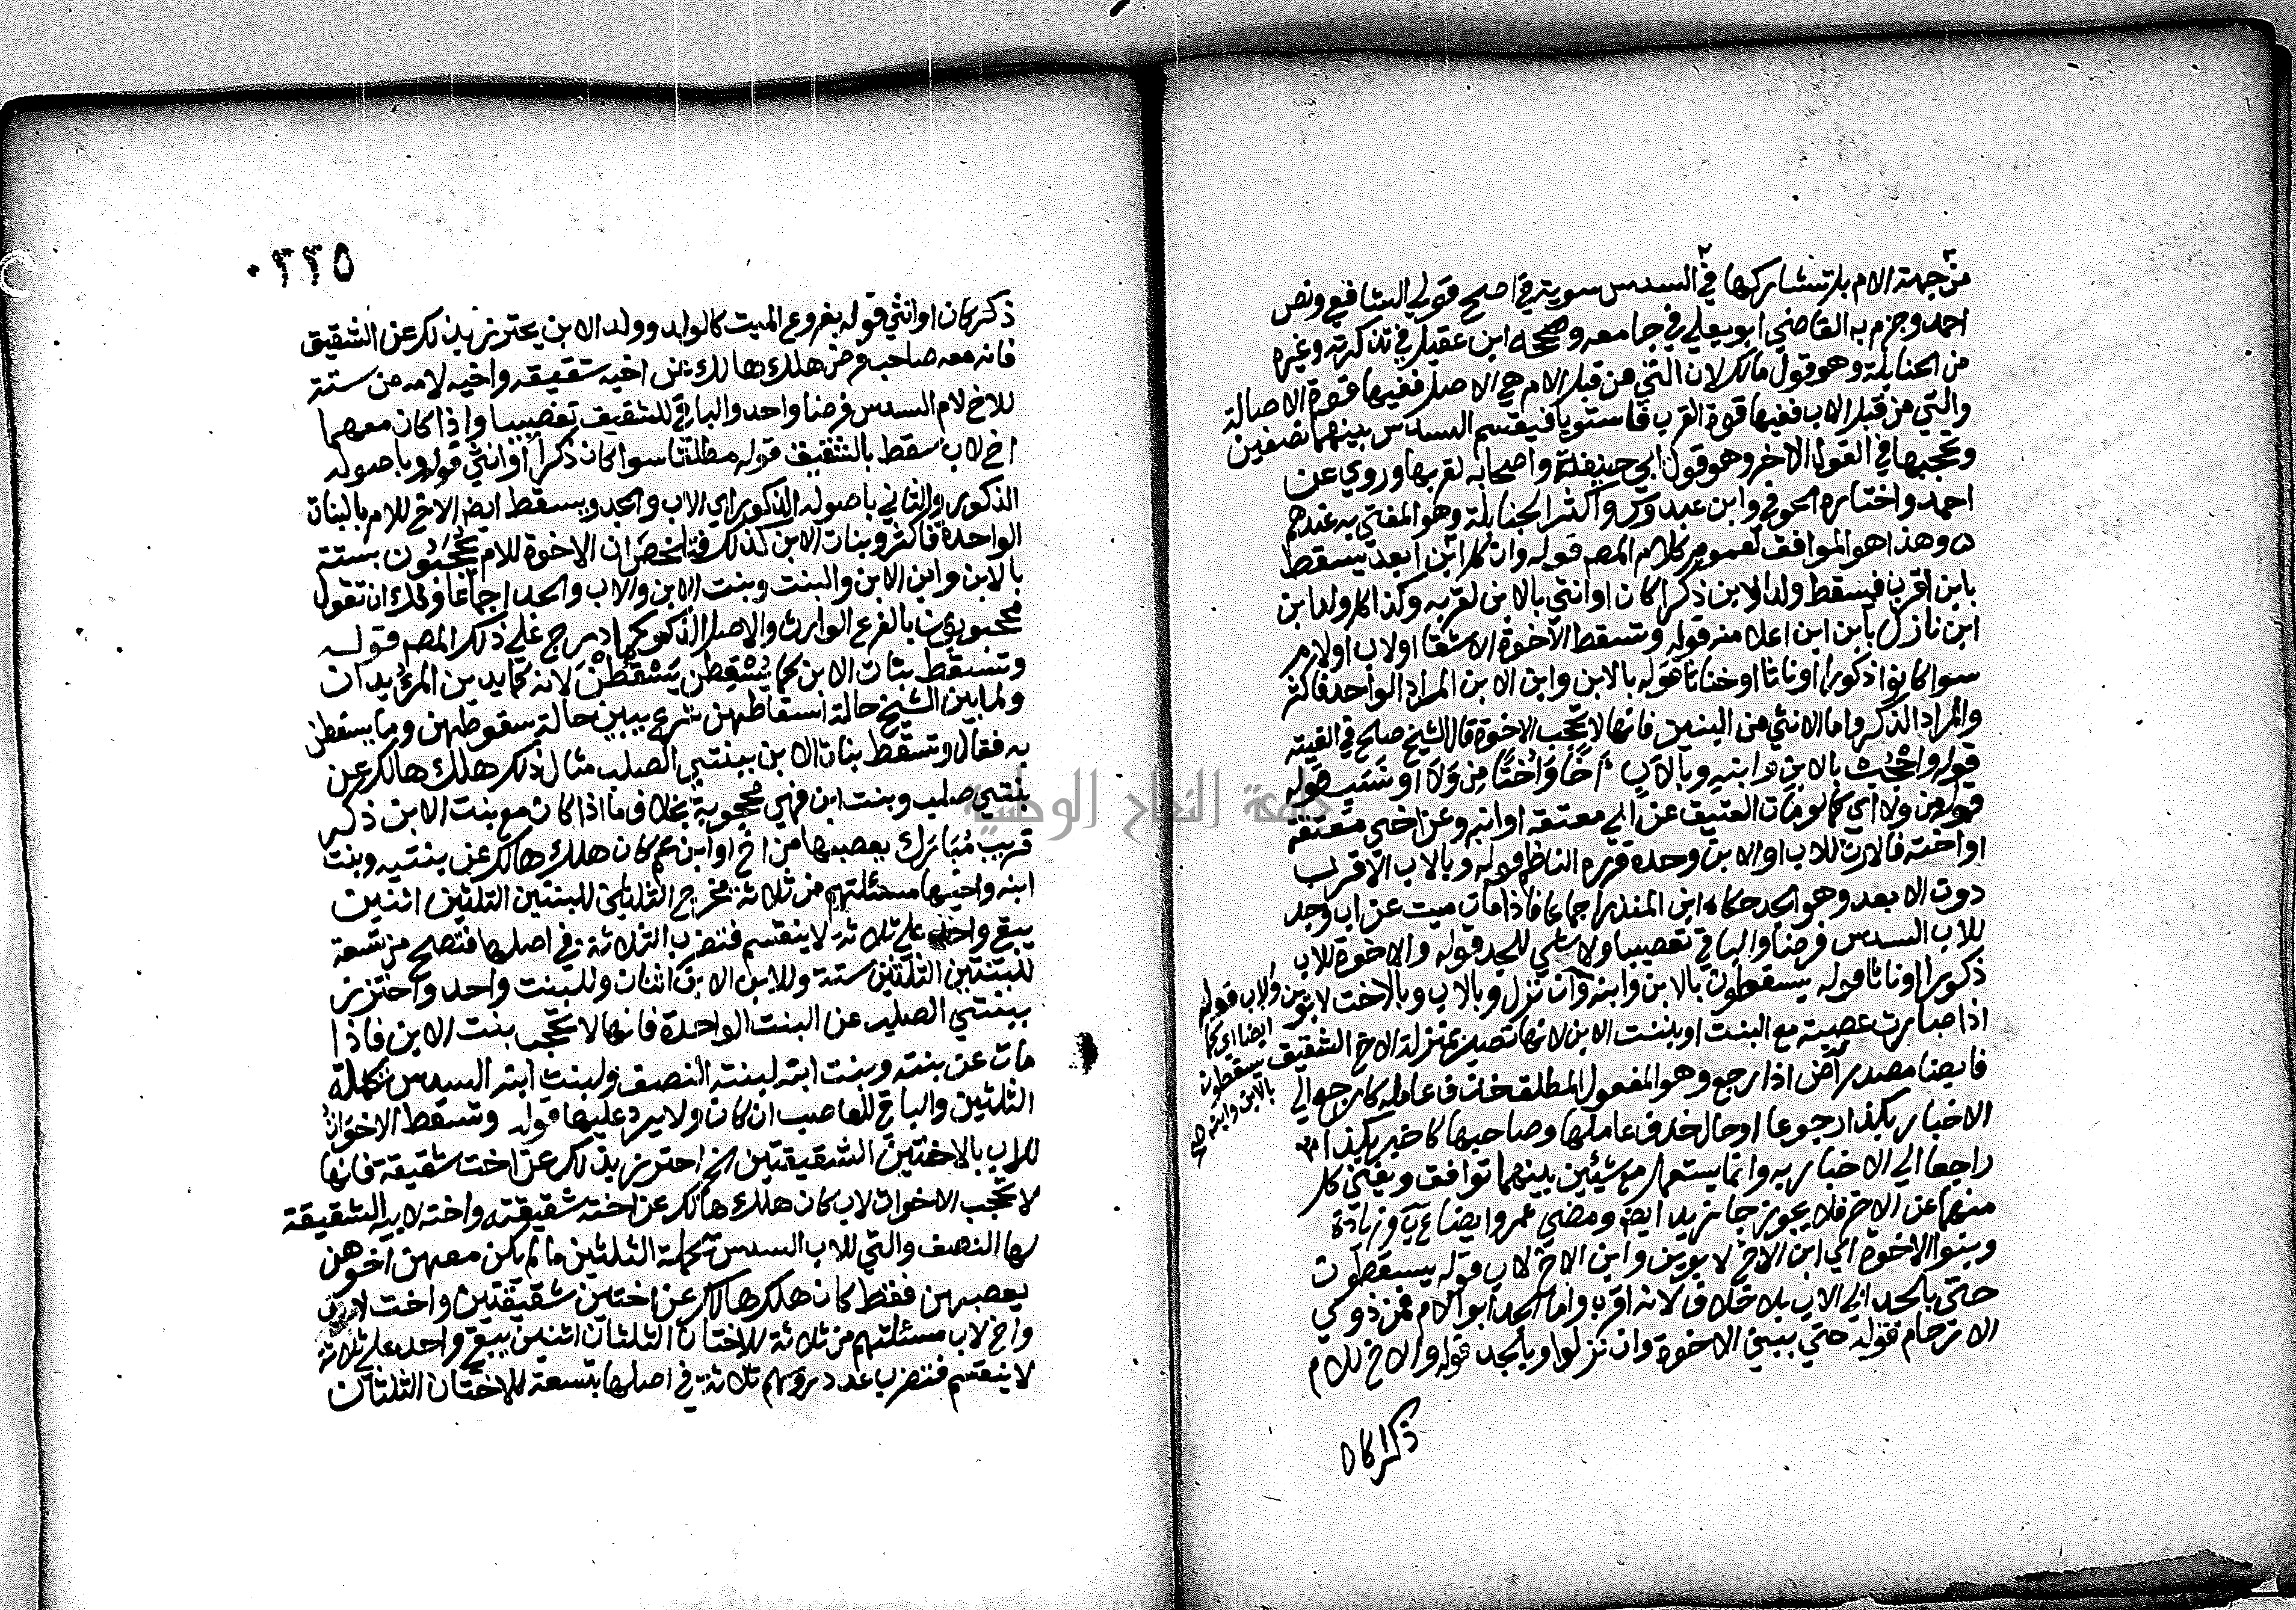 من جهة الام بل تشاركها في السدس سوية في اصح قولي الشافعي ونص
احمد وجزم به القاضي ابو يعلي في جامعه وصححه ابن عقيل في تذكرته وغيره
من الحنابلة وهو قول مالك لان التي من قبل الام هي الاصل ففيها قوة الاصالة
والتي من قبل الاب ففيها قوة القرب فاستويا فيقسم السدس بينهما نصفين
وتحجبها في القول الاخر وهو قول ابي حنيفة واصحابه لقربها وروي عن
احمد واختاره الحوفي وابن عبدوس واكثر الحنابلة وهو المفتي به عندهم
وهذا هو الموافق لعموم كلام المصه قوله وان كل ابن ابعد يسقط
بابن اقرب فيسقط ولد الابن ذكرا كان او انثي بالابن لقربه وكذا كل ولد ابن
ابن نازل بابن ابن اعلا منه قوله وتسقط الاخوة الاشقا او لاب او لام
سوا كانوا ذكورا او اناثا او خناثا قوله بالابن وابن الابن المراد الواحد فاكثر
والمراد الذكر واما الانثي من البنين فانها لا تحجب الاخوة قال الشيخ صالح في الفيته
قوله واحجب بالابن وابنه وبالاب أخا واختا من ولا او نسب قوله
قوله من ولا اي كما لو مات العتيق عن ابي معتقه او ابنه وعن اخي معتقه
او اخته فالارث للاب او الابن وحده قرره الناظم قوله وبالاب الاقرب
دون الابعد وهو الجد حكاه ابن المنذر اجماعا فاذا مات ميت عن اب وجد
للاب السدس فرضا والباقي تعصيبا ولا شي للجد قوله والاخوة للاب
ذكورا او اناثا قوله يسقطون بالابن وابنه وان نزل وبالاب وبالاخت لابوين ولاب قوله
اذا صارت عصبة مع البنت او بنت الابن لانها تصير بمنزلة الاخ الشقيق
ايضا اي كما
يسقطون
بالابن وابنه
فايضا مصدر آض اذا رجع وهو المفعول المطلق حذف عامله كارجع الي
الاخبار بكذا رجوعا او حال حذف عاملها وصاحبها كاخبر بكذا
راجعا الي الاخبار به وانما يستعمل مع شيئين بينهما توافق ويغني كل
منهما عن الاخر فلا يجوز جا زيد ايضا ومضي عمرو ايضا
وبنوا الاخوة اي ابن الاخ لابوين وابن الاخ لاب قوله يسقطون
حتي بالجد ابي الاب بلا خلاف لانه اقرب واما الجد ابو الام فمن ذوي
الارحام فقوله حتي ببني الاخوة وان نزلوا وبالجد قوله والاخ للام
ذكرا كان
٠٣٣٥
ذكرا كان او انثي قوله بفروع الميت كالولد وولد الابن يحترز بذلك عن الشقيق
فانه معه صاحب فرض هلك هالك عن اخيه شقيقه واخيه لامه من ستة
للاخ لام السدس فرضا واحد والباقي للشقيق تعصيبا واذا كان معهما
اخ لاب سقط بالشقيق قوله مطلقا سوا كان ذكرا او انثي قوله وباصوله
الذكور والثاني باصوله الذكور اي الاب والجد ويسقط ايضا الاخ للام بالبنات
الواحدة فاكثر وبنات الابن كذلك فانحصر ان الاخوة للام يحجبون بستة
بالابن وابن الابن والبنت وبنت الابن والاب والجد اجماعا ولك ان تقول
محجوبون بالفرع الوارث والاصل الذكر كما درج علي ذلك المصه قوله
وتسقط بنات الابن كما يسقطن يسقطن لانه كما يدين المرء يدان
ولما بين الشيخ حالة اسقاطهن شرع يبين حالة سقوطهن وما يسقطن
به فقال وتسقط بنات الابن ببنتي الصلب مثال ذلك هلك هالك عن
بنتي صلب وبنت ابن فهي محجوبة بخلاف ما اذا كان مع بنت الابن ذكر
قريب مبارك يعصبها من اخ او ابن عم كان هلك هالك عن بنتيه وبنت
ابنه واخيها مسئلتهم من ثلاثة مخرج الثلثين للبنتين الثلثين اثنين
يبقي واحد علي ثلاثة لا ينقسم فتضرب الثلاثة في اصلها فتصح من تسعة
للبنتين الثلثين ستة وللابن الابن اثنان وللبنت واحد واحترز
ببنتي الصلب عن البنت الواحدة فانها لا تحجب بنت الابن فاذا
مات عن بنته وبنت ابنه لبنته النصف ولبنت ابنه السدس تكملة
الثلثين والباقي للعاصب ان كان ولا يرد عليها قوله وتسقط الاخوات
للاب بالاختين الشقيقتين الخ احترز بذلك عن اخت شقيقة فانها
لا تحجب الاخوات لاب كان هلك هالك عن اخته شقيقته واخته لابيه الشقيقة
لها النصف والتي للاب السدس تكملة الثلثين ما لم يكن معهن اخوهن
يعصبهن فقط كان هلك هالك عن اختين شقيقتين واخت لاب
واخ لاب مسئلتهم من ثلاثة للاختان الثلثان اثنين يبقي واحد علي ثلاثة
لا ينقسم فتضرب عدد رؤسهم ثلاثة في اصلها بتسعة للاختان الثلثان
جامعة النجاح الوطنية